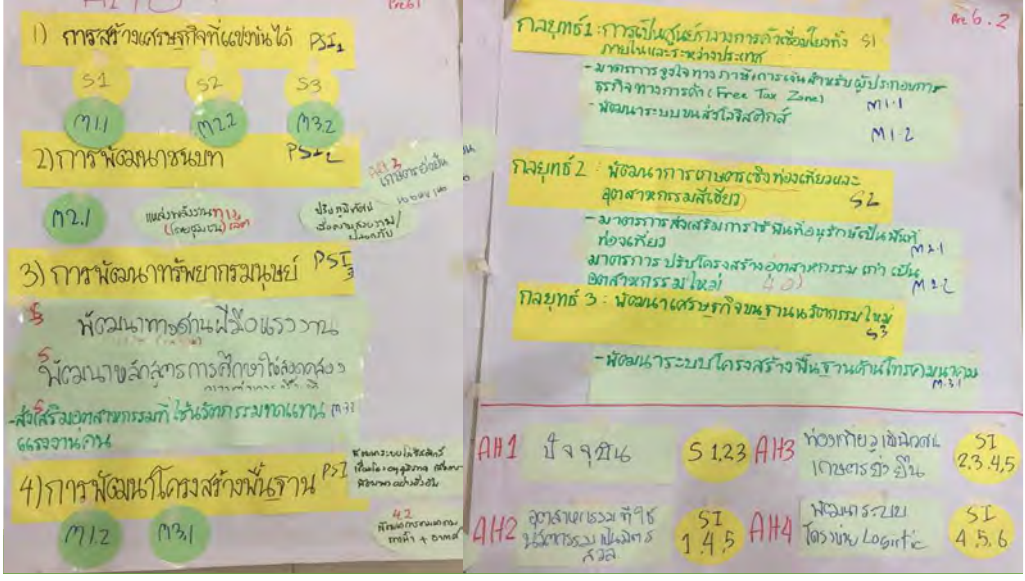 1) การสร้างเศรษฐกิจที่แข่งขันได้ PSI1
S1 S2 S3
M1.1 M2.2 M3.2
2) การพัฒนาชนบท PSI2
M2.1
แหล่งพลังงาน
3) การพัฒนาทรัพยากรมนุษย์ PSI3
พัฒนาทางด้านฝีมือแรงงาน
พัฒนาหลักสูตรการศึกษาให้สอดคล้อง
-ส่งเสริมอุตสาหกรรมที่ใช้นวัตกรรมทดแทน M3.2
แรงงานคน
4) การพัฒนาโครงสร้างพื้นฐาน PSI
4.2
M1.2 M3.1
กลยุทธ์1 : การเป็นศูนย์กลางการค้าเชื่อมโยงทั้ง S1
ภายในและระหว่างประเทศ
- มาตรการจูงใจทางภาษีการเงินสำหรับผู้ประกอบการ
ธุรกิจทางการค้า (Free Tax Zone) M1.1
- พัฒนาระบบขนส่งโลจิสติกส์ M1.2
กลยุทธ์2 : พัฒนาการเกษตรเชิงท่องเที่ยวและ
อุตสาหกรรมสีเขียว S2
- มาตรการส่งเสริมการใช้พื้นที่อนุรักษ์เป็นพื้นที่
ท่องเที่ยว M2.1
มาตรการปรับโครงสร้างอุตสาหกรรมเก่า เป็น
อุตสาหกรรมใหม่ (4.0) M2.2
กลยุทธ์ 3 : พัฒนาเศรษฐกิจบนฐานนวัตกรรมใหม่
S3
- พัฒนาระบบโครงสร้างพื้นฐานด้านโทรคมนาคม
M.3.1
AH1 ปัจจุบัน S 1,2,3
AH3 เกษตรยั่งยืน SI 2,3,4,5
AH2 อุตสาหกรรมที่ใช้ SI 1,4,5
AH4 พัฒนาระบบ
โครงข่าย Logistic SI 4,5,6